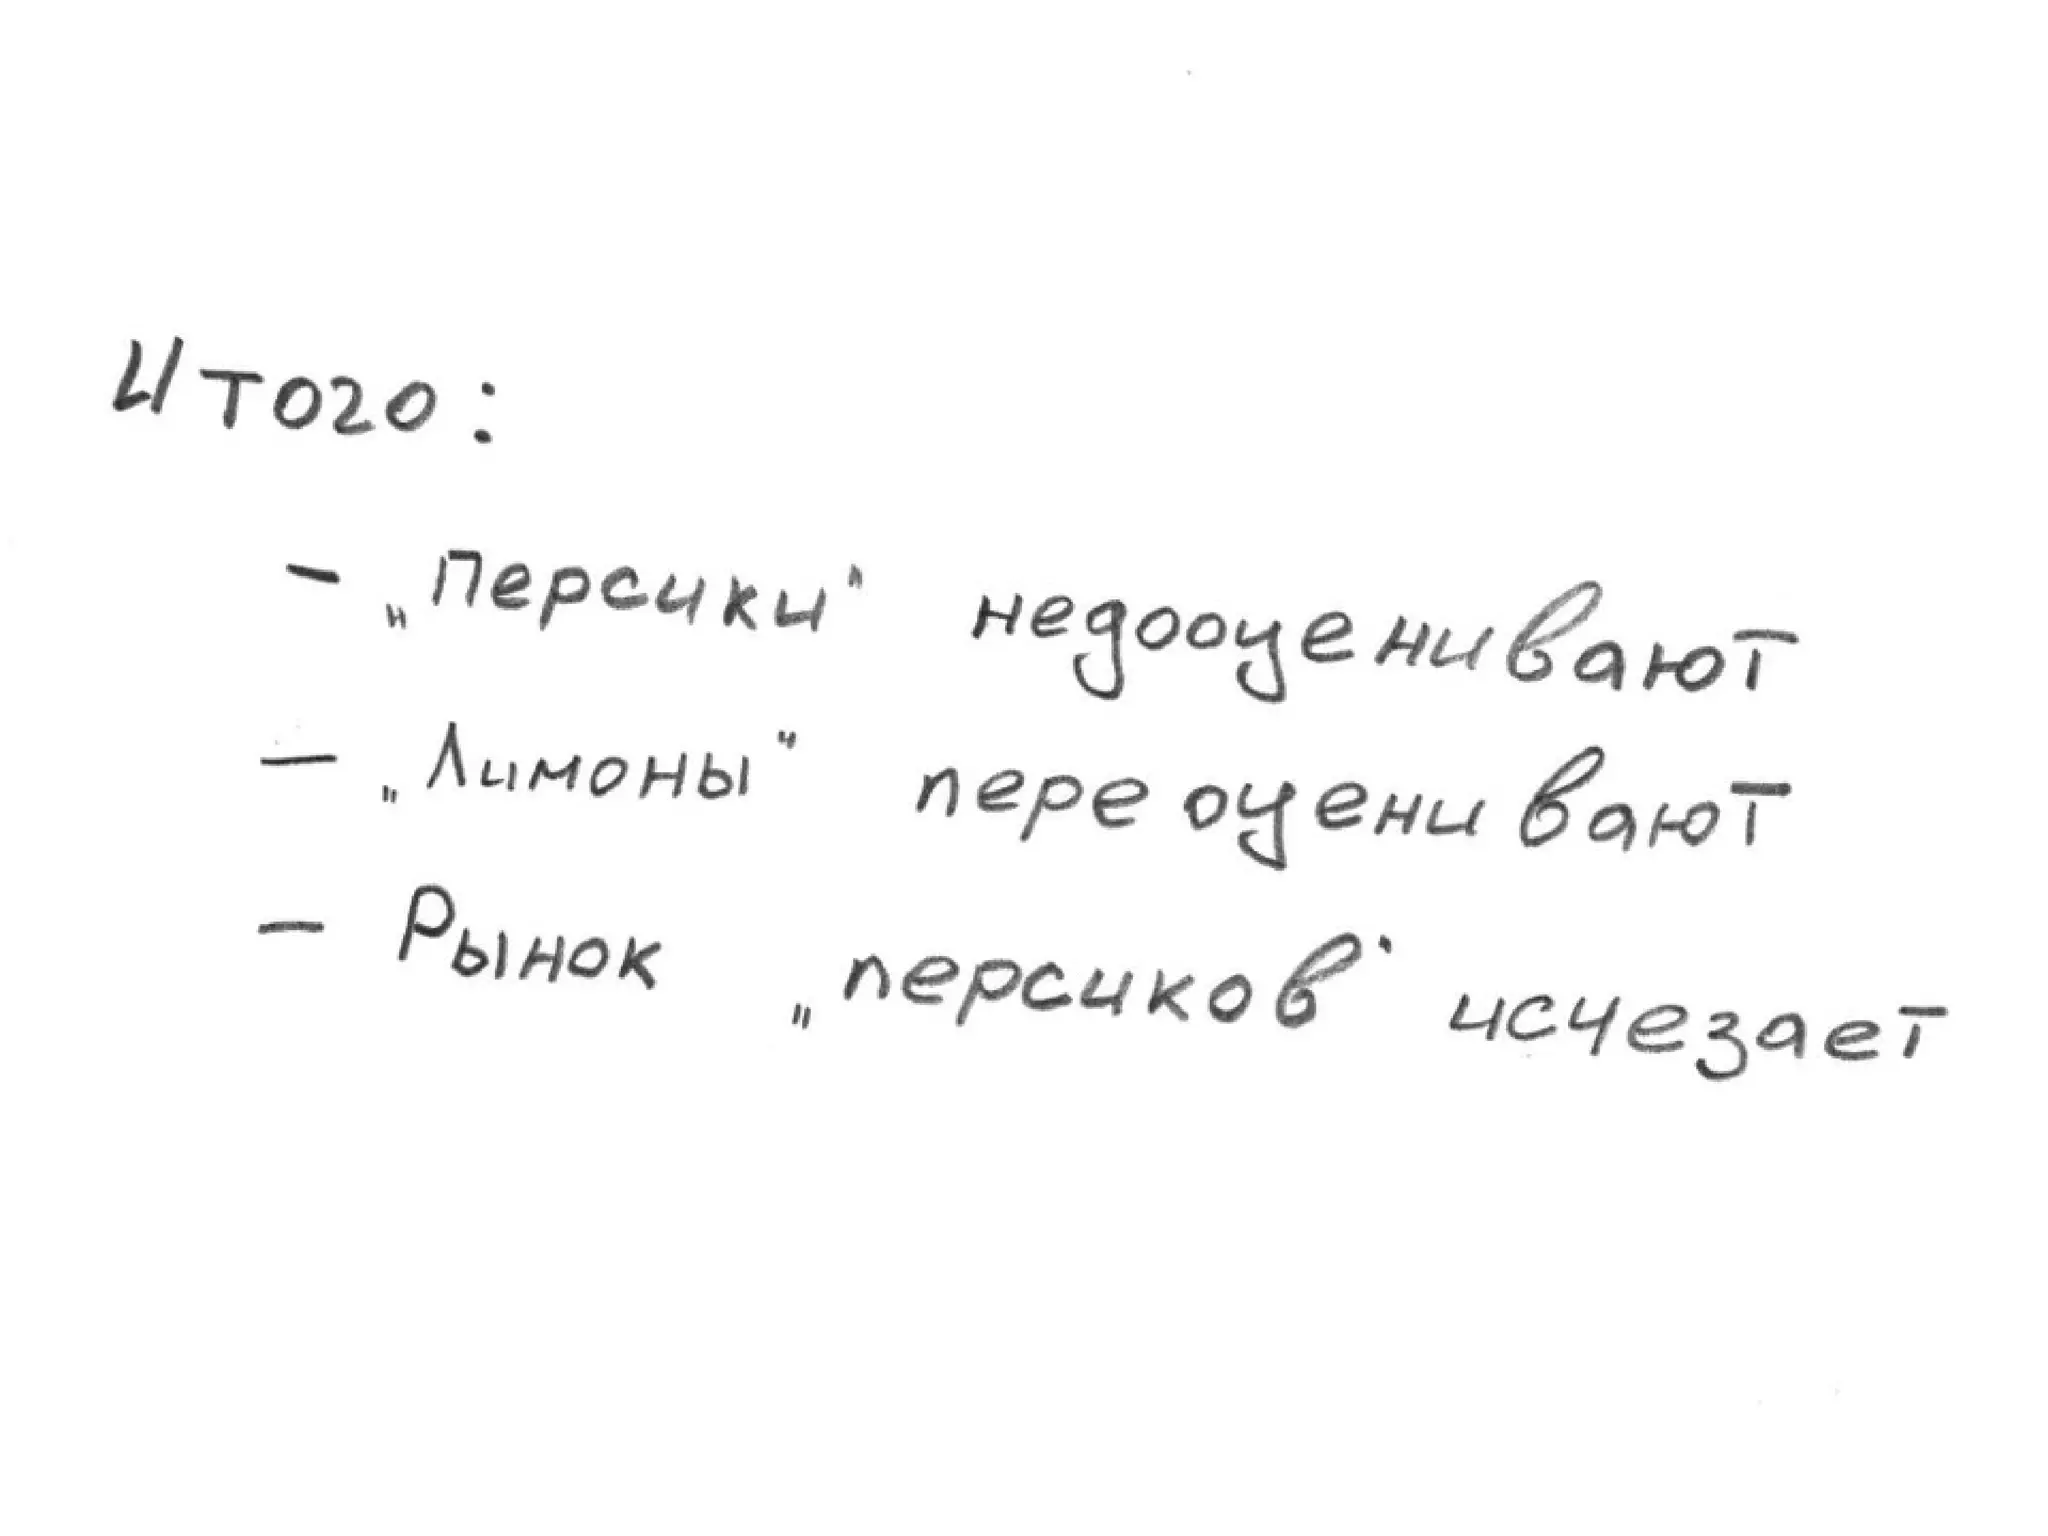 Итого:
- „Персики" недооценивают
- „Лимоны" переоценивают
- Рынок „персиков" исчезает